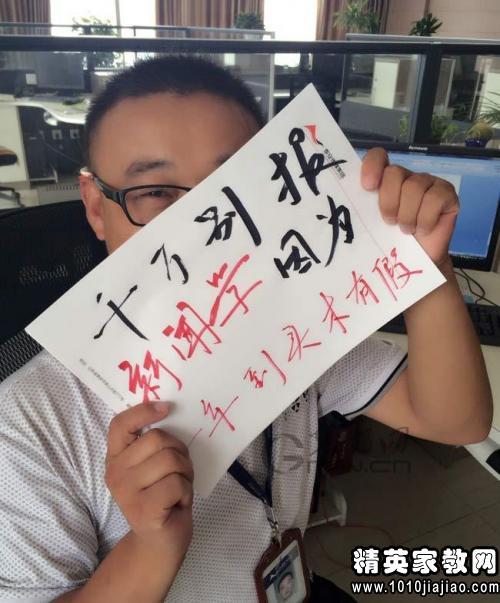 千万别报
新闻学 因为
一年到头未有假
lenovo
精英家教网
www.1010jiajiao.com